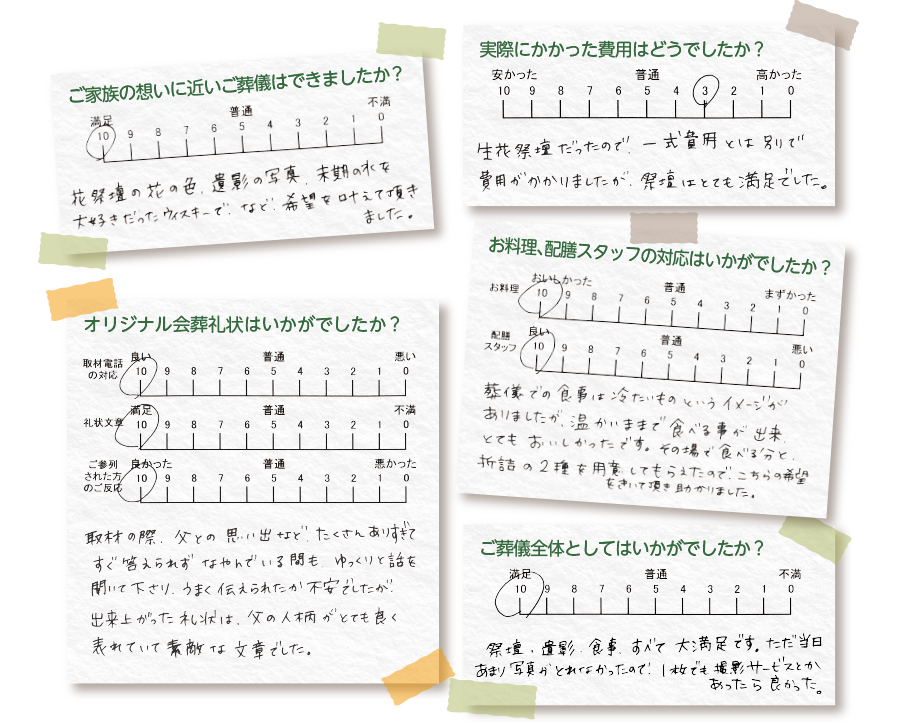 ご家族の想いに近いご葬儀はできましたか？
満足 普通 不満
10 9 8 7 6 5 4 3 2 1 0
花祭壇の花の色、遺影の写真、末期の水を
大好きだったウィスキーで、など、希望を叶えて頂き
ました。
実際にかかった費用はどうでしたか？
安かった 普通 高かった
10 9 8 7 6 5 4 3 2 1 0
生花祭壇だったので、一式費用とは別りで
費用がかかりましたが、祭壇はとても満足でした。
オリジナル会葬礼状はいかがでしたか？
良い 普通 悪い
取材電話
の対応
10 9 8 7 6 5 4 3 2 1 0
満足 普通 不満
礼状文章 10 9 8 7 6 5 4 3 2 1 0
良かった 普通 悪かった
ご参列
された方
のご反応
10 9 8 7 6 5 4 3 2 1 0
取材の際、父との思い出など、たくさんありすぎて
すぐ答えられずなやんでいる間も、ゆっくりと話を
聞いて下さり、うまく伝えられたか不安でしたが、
出来上がった礼状は、父の人柄がとても良く
表れていて素敵な文章でした。
お料理、配膳スタッフの対応はいかがでしたか？
おいしかった 普通 まずかった
お料理 10 9 8 7 6 5 4 3 2 1 0
良い 普通 悪い
配膳
スタッフ
10 9 8 7 6 5 4 3 2 1 0
葬儀での食事は冷たいものというイメージが
ありましたが、温かいままで食べる事が出来、
とてもおいしかったです。その場で食べる分と、
折詰の2種を用意してもらえたので、こちらの希望
をきいて頂き助かりました。
ご葬儀全体としてはいかがでしたか？
満足 普通 不満
10 9 8 7 6 5 4 3 2 1 0
祭壇、遺影、食事、すべて大満足です。ただ当日
あまり写真がとれなかったので、1枚でも撮影サービスとか
あったら良かった。